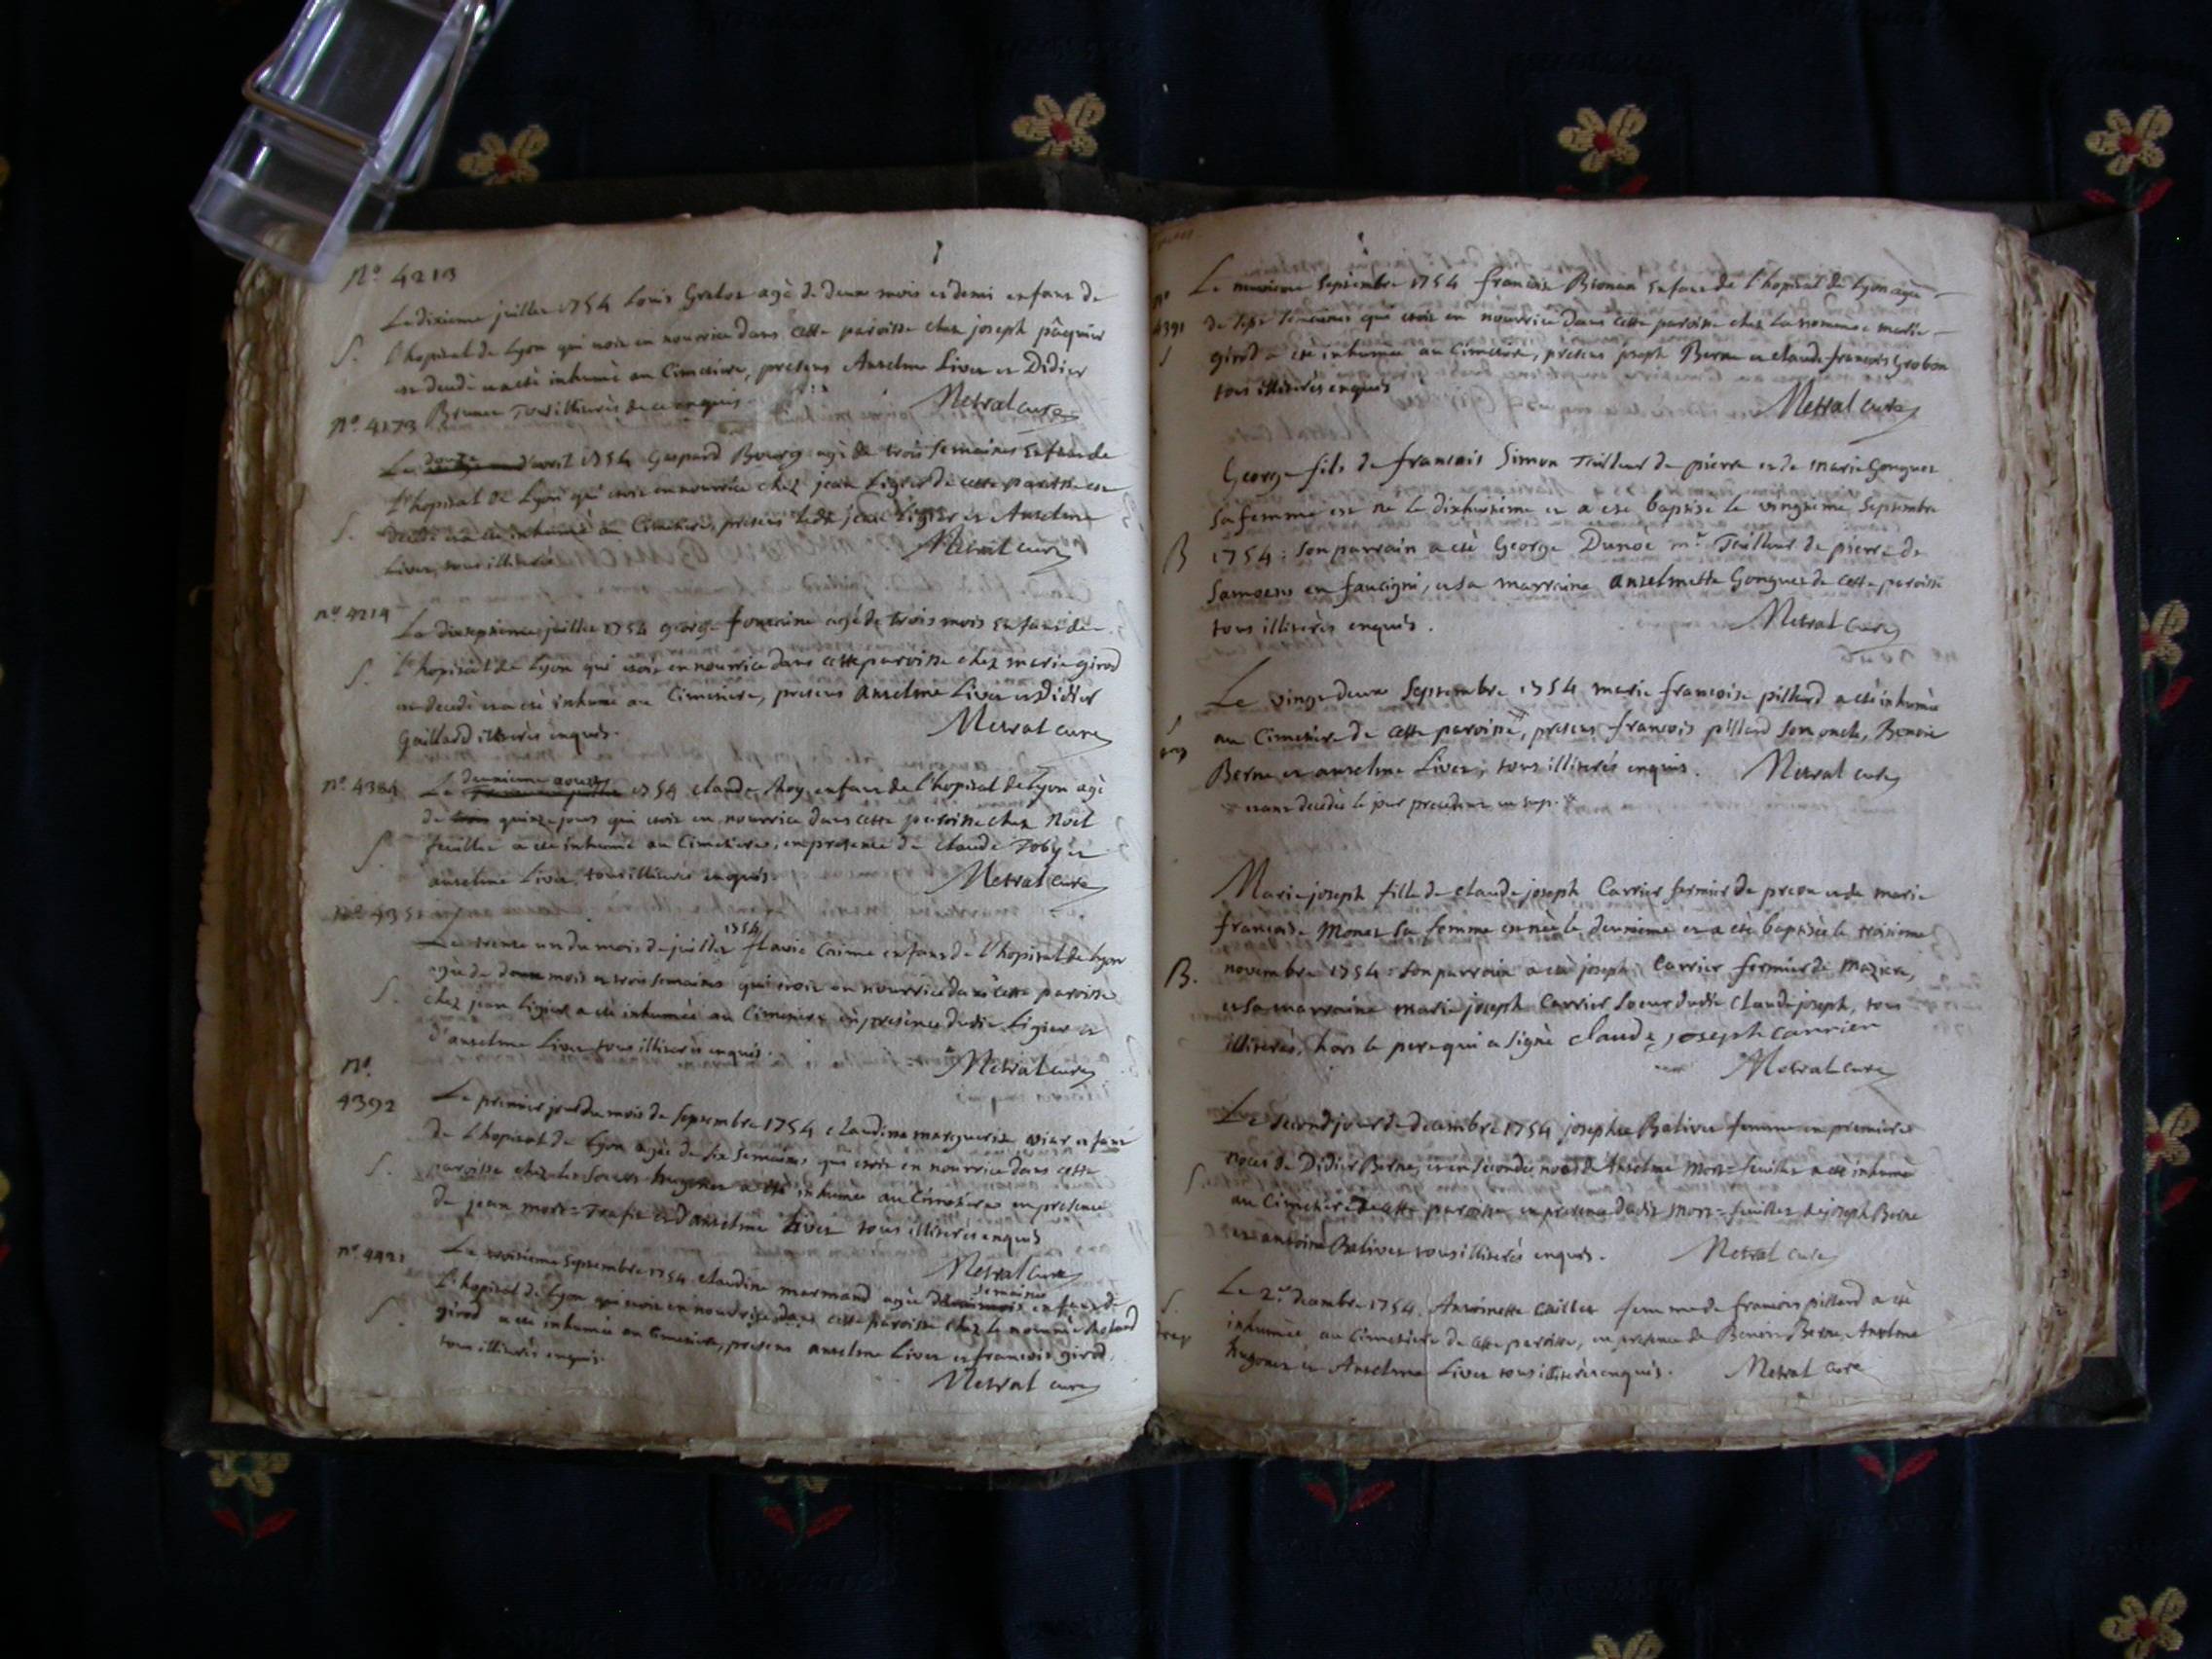 N.º 4213
Le dixieme juillet 1754 Louis Grelot agé de deux mois et demi enfant de
S. l'hopital de Lyon qui etoit en nourrice dans cette paroisse chez joseph pâquier
est decedé et a eté inhumé au Cimetiere, presens Anselme Livet et Didier
Brunet Tous illiterés de ce enquis. Metral curé
N.º 4173
Le douze d'avril 1754 Gaspard Bourg agé de trois semaines Enfant de
l'hopital de Lyon qui etoit en nourrice chez jean Ligier de cette paroisse est
S. decedé et a eté inhumé au Cimetiere, presens ledit jean Ligier et Anselme
Livet, tous illiterés Metral curé
n.º 4214
Le dixseptieme juillet 1754 george fontaine agé de trois mois Enfant de
S. l'hopital de Lyon qui etoit en nourrice dans cette paroisse chez marie girod
est decedé et a eté inhumé au Cimetiere, presens anselme Livet et Didier
Gaillard illiterés enquis. Metral curé
n.º 4384 Le deuxieme aoust 1754 claude Roy enfant de l'hopital de Lyon agé
de quinze jours qui etoit en nourrice dans cette paroisse chez Noel
S. feuillet a eté inhumé au Cimetiere, en presence de claude Toby et
anselme Livet, tous illiterés enquis. Metral curé
n.º 435
1754
Le trente un du mois de juillet flavie Cosime enfant de l'hopital de Lyon
agée de mois et trois semaines qui etoit en nourrice dans cette paroisse
S. chez jean Ligier a eté inhumée au Cimetiere en presence dudit Ligier et
d'anselme Livet tous illiterés enquis. Metral curé
N.º
4392 Le premier jour du mois de Septembre 1754 claudine marguerite viar enfant
de l'hopital de Lyon agée de six semaines qui etoit en nourrice dans cette
S. paroisse chez les soeurs hugonet a eté inhumée au Cimetiere en presence
de jean mort=Trafic et d'anselme Livet tous illiterés enquis
Metral curé
n.º 4421 Le troisieme Septembre 1754 claudine marmand agée semaines enfant de
l'hopital de Lyon qui etoit en nourrice dans cette paroisse chez le nommé Roland
S. girod a eté inhumée au Cimetiere, presens anselme Livet et francois girod,
tous illiterés enquis. Metral curé
n.º Le neuvieme Septembre 1754 francois Enfant de l'hopital de Lyon agée
4391 de sept semaines qui etoit en nourrice dans cette paroisse chez la nommée marie
S girod a eté inhumée au Cimetiere, presens joseph Berne et claude francois Grobon
tous illiterés enquis Metral curé
George fils de francois Simon Tailleur de pierre et de marie Gonguet
sa femme est né le dixhuitieme et a eté baptisé le vingtieme Septembre
B 1754: son parrain a eté George Dunoi m.e Tailleur de pierre de
Samoens en faucigni, et sa marraine anselmette Gonguet de cette paroisse
tous illiterés enquis. Metral curé
Le vingt deux Septembre 1754 marie francoise pillard a eté inhumée
S au Cimetiere de cette paroisse, presens francois pillard son oncle, Benoit
Berne et anselme Livet, tous illiterés enquis. Metral curé
etant decedée le jour precedent
Marie joseph fille de claude joseph Carrier fermier de et de marie
francoise Monet sa femme est née le deuxieme et a eté baptisée le troisieme
B. novembre 1754: son parrain a eté joseph Carrier fermier de Maziere,
et sa marraine marie joseph Carrier soeur dudit Claude joseph, tous
illiterés, hors le pere qui a signé claude joseph carrier
Metral curé
Le second jour de decembre 1754 josephte Balivet femme en premieres
noces de Didier Berne, et en secondes noces de Anselme mort=feuillet a eté inhumée
S. au Cimetiere de cette paroisse en presence dudit mort=feuillet de joseph Berne
et antoine Balivet tous illiterés enquis. Metral curé
S. Le 2.e decembre 1754. Antoinette Cuillet femme de francois pillard a eté
inhumée au cimetiere de cette paroisse, en presence de Benoit Berne, Anselme
hugonet et Anselme Livet tous illiterés enquis. Metral curé